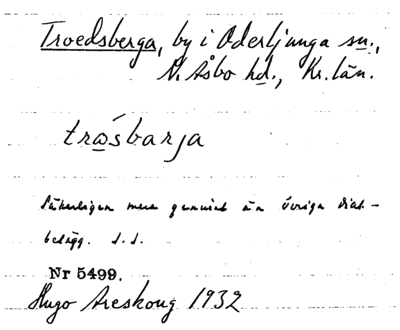 Troedsberga, by i Oderljunga sn.,
N. Åsbo hd., Kr. län.
tråsbarja
Säkerligen mera genuint än övriga dial-
belägg. S. S.
Nr 5499.
Hugo Areskoug 1932